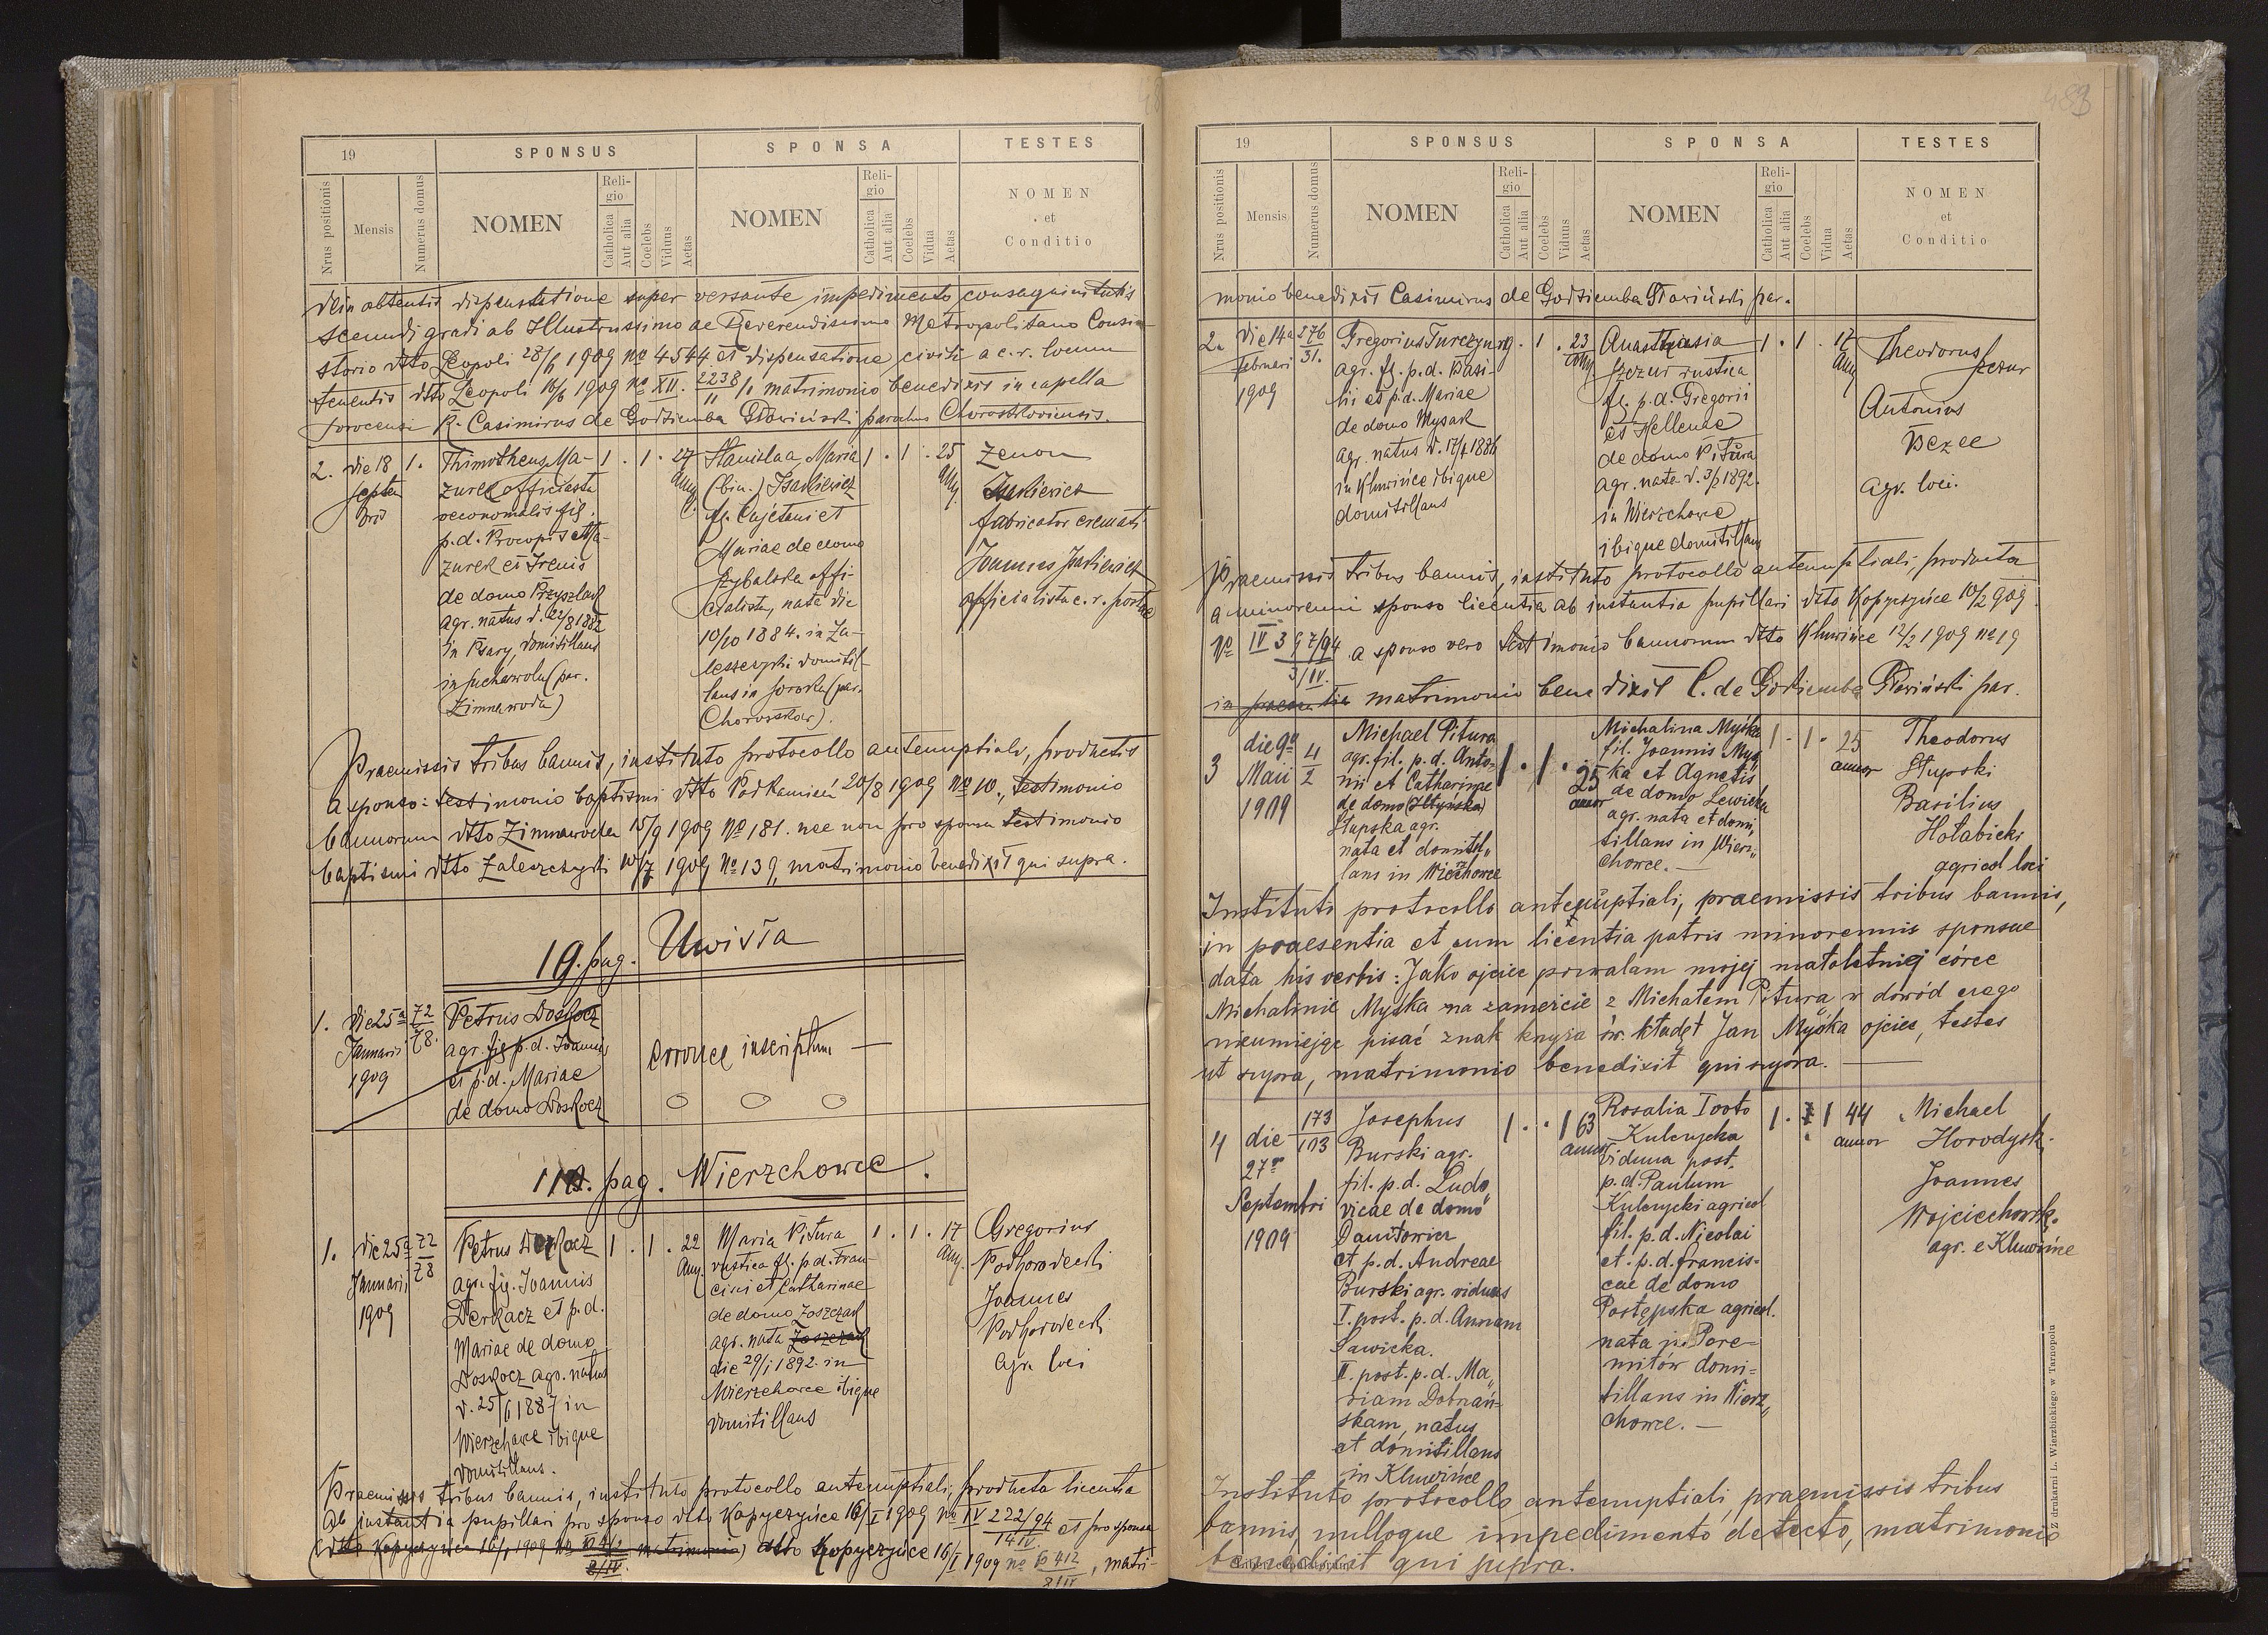 483
19
SPONSUS
SPONSA
TESTES
Nrus positionis
Mensis
Numerus domus
NOMEN
Religio
Catholica
Aut alia
Coelebs
Viduus
Aetas
NOMEN
Religio
Catholica
Aut alia
Coelebs
Vidua
Aetas
NOMEN
et
Conditio
dein obtentis dispensatione super versante impedimento consaguinitatis
secundi gradi ab Illustrissimo ac Reverendissimo Metropolitano Consi-
storio dtto Leopoli 28/6 1909 No 4544 et dispensatione civili a c. r. locum
tenentis dtto Leopoli 16/6 1909 No XII. 2238/ matrimonio benedixit in capella
sorocensi R. Casimirus de Godziemba parochus Chorostkoviensis.
2. die 18 Septembris
1.
Thimotheus Ma-
zurek officiasta
oeconomalis fil.
p.d. Procopis Ma-
zurek et Irenis
de domo Przyszlak
agr. natus d. 22/8 1882
in Psary, domitillans
in Suchowola (par.
Zimnawoda)
1 . 1 . 27 Any
Stanislaa Maria
(bin.) Isakiewicz
fl. Cajetani et
Mariae de domo
Szybalska offi-
cialista, nata die
10/10 1884. in Za-
leszczyki domitil-
lans in Soroka (par.
Chorostkow).
1 . 1 . 25 Any.
Zenon
Isakiewicz
fabricator cremati
Joannes Isakiewicz
officialista c. r. postae
Praemissis tribus bannis, instituto protocollo antenuptiali, productis
a sponso: testimonio baptismi dtto Podkamień 20/8 1909 No 10., testimonio
bannorum dtto Zimnawoda 15/9 1909 No 181. nec non pro sponsa testimonio
baptismi dtto Zaleszczyki 10/7 1909 No 139, matrimonio benedixit qui supra.
19. pag. Uwisła
1. die 25a Januarii 1909
72/78.
Petrus Doskocz
agr. fil. p.d. Joannis
et p.d. Mariae
de domo Doskocz
erronee inscriptum —
pag. Wierzchowce.
1. die 25a Januarii 1909
72/78
Petrus Derkacz
agr. fil. Joannis
Derkacz et p.d.
Mariae de domo
Doskocz agr. natus
d. 25/6 1887 in
Wierzchowce ibique
domitillans.
1 . 1 . 22 Any.
Maria Pitura
rustica fl. p.d. Fran-
cisci et Catharinae
de domo Zoszczak
agr. nata Zoszczak
die 29/1 1892. in
Wierzchowce ibique
domitillans
1 . 1 . 17 Any.
Gregorius
Podhorodecki
Joannes
Podhorodecki
agr. loci
Praemissis tribus bannis, instituto protocollo antenuptiali, producta licentia
ab instantia pupillari pro sponso dtto Kopyczyńce 16/I 1909 No IV 222/94 14 IV et pro sponsa
(dtto Kopyczyńce 16/1 1909 No matrimonio) dtto Kopyczyńce 16/I 1909 No 412, matri-
19
SPONSUS
SPONSA
TESTES
Nrus positionis
Mensis
Numerus domus
NOMEN
Religio
Catholica
Aut alia
Coelebs
Viduus
Aetas
NOMEN
Religio
Catholica
Aut alia
Coelebs
Vidua
Aetas
NOMEN
et
Conditio
monio benedixit Casimirus de Godziemba par.
2. die 14a Februari 1909
276/31.
Gregorius Turczyn
agr. fl. p.d. Basi-
lii et p.d. Mariae
de domo Mysak
agr. natus d. 17/1 1886
in Kluwińce ibique
domitillans
1 . 23 Any
Anasthasia
Szczur rustica
fl. p.d. Gregorii
et Hellenae
de domo Pitura
agr. nata d. 3/2 1892.
in Wierzchowce
ibique domitillans
1 . 1 . 17 Any
Theodorus
Szczur
Antonius
Bezec
agr. loci.
Praemissis tribus bannis, instituto protocollo antenuptiali, producta
a minorenni sponso licentia ab instantia pupillari dtto Kopyczyńce 10/2 909
No IV 397/94 3/IV. a sponso vero testimonio bannorum dtto Kluwińce 12/2 1909 No 19
in praesentia matrimonio benedixit C. de Godziemba par.
3 die 9a Maii 1909
4/2
Michael Pitura
agr. fil. p.d. Anto-
nii et Catharinae
de domo
Słupska agr.
nata et domitil-
lans in Wierzchowce
1 . 1 . 25 annor
Michalina Myśka
fil. Joannis Myś-
ka et Agnetis
de domo Lewicka
agr. nata et domi-
tillans in Wierz-
chowce. —
1 . 1 . 25 annor
Theodorus
Słupski
Basilius
Hołabicki
agricol loci
Instituti protocollo antenuptiali, praemissis tribus bannis,
in praesentia et cum licentia patris minorennis sponsae
data his verbis: Jako ojciec pozwalam mojej małoletniej córce
Michalinie Myśka na zamęście z Michałem Pitura, w dowód czego
nieumiejąc pisać znak krzyża św. kładę† Jan Myśka ojciec, testes
ut supra, matrimonio benedixit qui supra. —
4 die 27a Septembri 1909
173/103
Josephus
Burski agr.
fil. p.d. Ludo-
vicae de domo
Daniłowicz
et p.d. Andreae
Burski agr. viduus
I. post. p.d. Annam
Sawicka.
II. post. p.d. Ma-
riam Dobrzań-
skam, natus
et domitillans
in Kluwińce
1 . . 1 63 annor
Rosalia Ivoto
Kulczycka
vidua post.
p.d. Paulum
Kulczycki agricol
fil. p.d. Nicolai
et. p.d. Francis-
cae de domo
Postępska agricol.
nata in Pere-
mitów domi-
tillans in Wierz-
chowce. —
1 . 1 44 annor
Michael
Horodyski
Joannes
Wojciechowski
agr. e Kluwińce
Instituto protocollo antenuptiali, praemissis tribus
bannis, nulloque impedimento detecto, matrimonio
benedixit qui supra.
Z drukarni L. Wierzbickiego w Tarnopolu